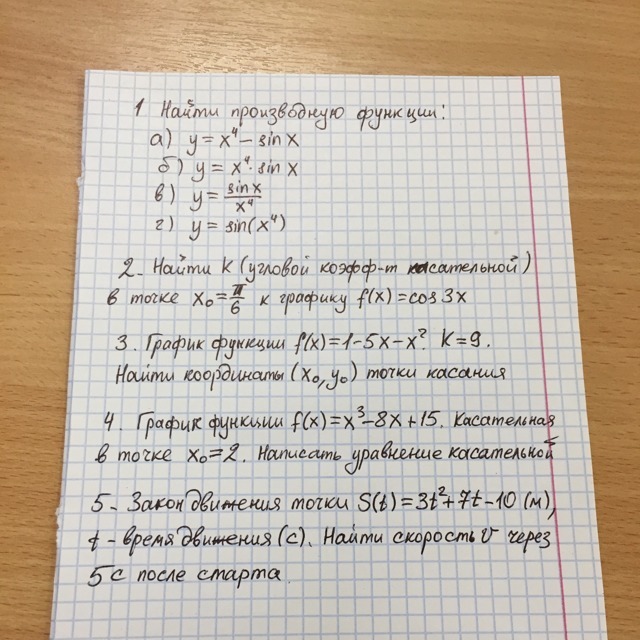 1 Найти производную функции:
а) y = x⁴ - sin x
б) y = x⁴ · sin x
в) y = sin x / x⁴
г) y = sin(x⁴)
2. Найти K (угловой коэфф-т касательной)
в точке x₀ = π/6 к графику f(x) = cos 3x
3. График функции f(x) = 1 - 5x - x². K = 9.
Найти координаты (x₀, y₀) точки касания
4. График функции f(x) = x³ - 8x + 15. Касательная
в точке x₀ = 2. Написать уравнение касательной
5. Закон движения точки S(t) = 3t² + 7t - 10 (м),
t - время движения (с). Найти скорость V через
5 с после старта.